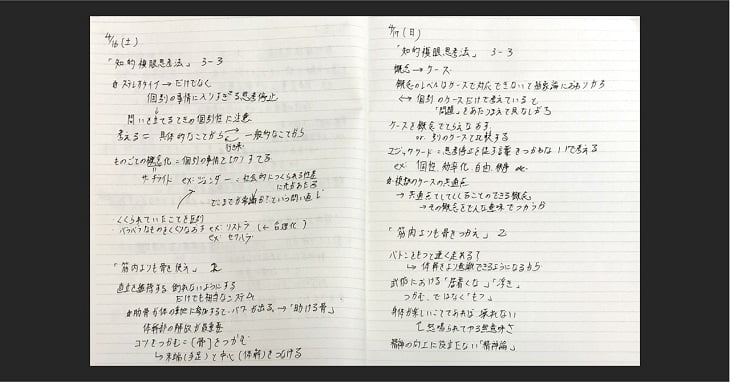 4/16(土)
「知的複眼思考法」 3-3
☆ステレオタイプ→だけでなく
個別の事情に入りすぎる思考停止
問いを立てるときの個別性に注意
考える= 具体的なことから 一般的なことから
往来
ものごとの概念化=個別の事情を切りすてる
サーチライト ex:ジェンダー:社会的につくられる性差
に光があたる
どこまでが常識か?という問い直し
・くくられていたことを区別
・バラバラなものをくくりなおす ex:リストラ (←合理化)
ex:セクハラ
「筋肉よりも骨を使え」 2
直立を維持する、倒れないようにする
だけでも相当なシステム
☆肋骨が体の動きに参加すると→パワーが出る→「助ける骨」
体幹部の解放が最重要
コツをつかむ=(骨)をつかむ
↳末端(手足)と中心(体幹)をつなげる
4/17(日)
「知的複眼思考法」 3-3
概念→ケース
概念のレベルはケースで対応できないで抽象論におちいりがち
↔個別のケースだけで考えていると
「問題」をあたりまえで見なしがち
ケースを概念でとらえなおす
or 別のケースと比較する
マジックワード=思考停止を促す言葉をつかわないで考える
ex:個性、効率化、自由、秩序 etc
☆複数のケースの共通点
→共通点としてくくることのできる概念
→その概念をどんな意味でつかうか
「筋肉よりも骨をつかえ」 2
バトンをもつと速く走れる?
↳体幹をより意識できるようになるから
武術における「居着くな」「浮き」
つかむ、ではなく「もつ」
身体が楽しいことであれば 疲れない
怒鳴られてやる無意味さ
精神の向上に役立たない「精神論」